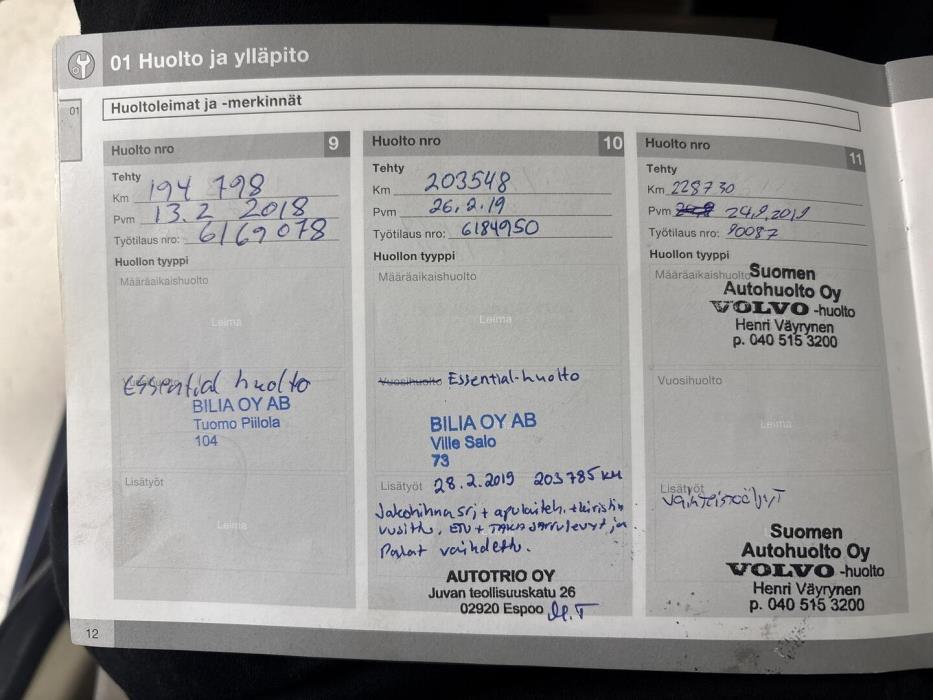 01 Huolto ja ylläpito
01
Huoltoleimat ja -merkinnät
Huolto nro 9
Tehty
Km 194 798
Pvm 13.2 2018
Työtilaus nro: 6169078
Huollon tyyppi
Määräaikaishuolto
Leima
Essential huolto
BILIA OY AB
Tuomo Piilola
104
Lisätyöt
Leima
Huolto nro 10
Tehty
Km 203548
Pvm 26.2.19
Työtilaus nro: 6184950
Huollon tyyppi
Määräaikaishuolto
Leima
Vuosihuolto Essential-huolto
BILIA OY AB
Ville Salo
73
Lisätyöt 28.2.2019 203785 km
Jakohihna srj + apulaiteh. + kiristin
vusittu, ETU + TAKA Jarrulevyt ja
Palat vaihdettu.
AUTOTRIO OY
Juvan teollisuuskatu 26
02920 Espoo
Huolto nro 11
Tehty
Km 228730
Pvm 24.9.2019
Työtilaus nro: 90087
Huollon tyyppi
Määräaikaishuolto
Suomen
Autohuolto Oy
VOLVO -huolto
Henri Väyrynen
p. 040 515 3200
Vuosihuolto
Leima
Lisätyöt
Vaihteistoöljyt
Suomen
Autohuolto Oy
VOLVO -huolto
Henri Väyrynen
p. 040 515 3200
12